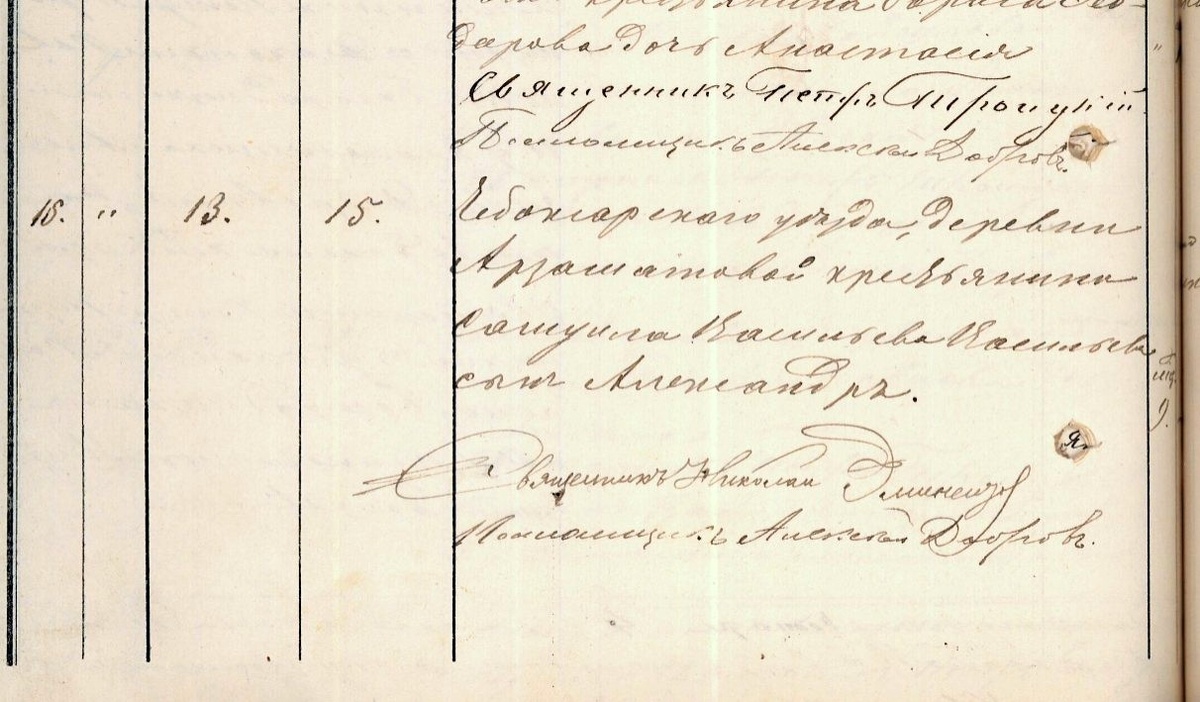 крестьянина
дорова дочь Анастасія
Священникъ Петръ Троицкій
Псаломщикъ Алексей Добровъ.
16. " 13. 15. Чебоксарскаго уѣзда, деревни
Арзаматовой крестьянина
Самуила Васильева Васильева
сынъ Александръ.
Священникъ Николай
Псаломщикъ Алексей Добровъ.